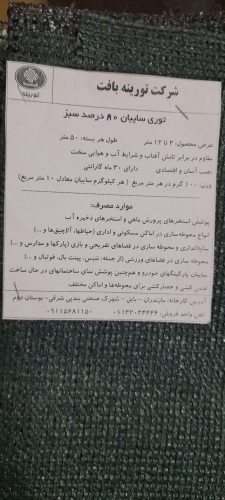 شرکت تورینه بافت
تورینه
توری سایبان ۸۰ درصد سبز
عرض محصول: ۲ تا ۱۲ متر طول هر بسته: ۵۰ متر
مقاوم در برابر تابش آفتاب و شرایط آب و هوایی سخت
نصب آسان و اقتصادی دارای ۳۰ ماه گارانتی
وزن: ۱۰۰ گرم در هر متر مربع ( هر کیلوگرم سایبان معادل ۱۰ متر مربع)
موارد مصرف:
پوشش استخرهای پرورش ماهی و استخرهای ذخیره آب
انواع محیطه سازی در اماکن مسکونی و اداری (حیاطها، آلاچیق‌ها و...
سایه‌اندازی و محوطه سازی در فضاهای تفریحی و بازی (پارکها و مدارس و ...)
محوطه سازی در فضاهای ورزشی (از جمله: تنیس، پینت بال، فوتبال و ...)
سایبان پارکینگهای خودرو و همچنین پوشش نمای ساختمانهای در حال ساخت
فنس کشی و حصارکشی برای محوطه‌ها و اماکن مختلف
آدرس کارخانه: مازندران - بابل - شهرک صنعتی بندپی شرقی- بوستان دوم
تلفن واحد فروش: ۰۱۱۳۲۰۲۴۴۴۴ - ۰۹۱۱۵۶۸۱۱۵۰